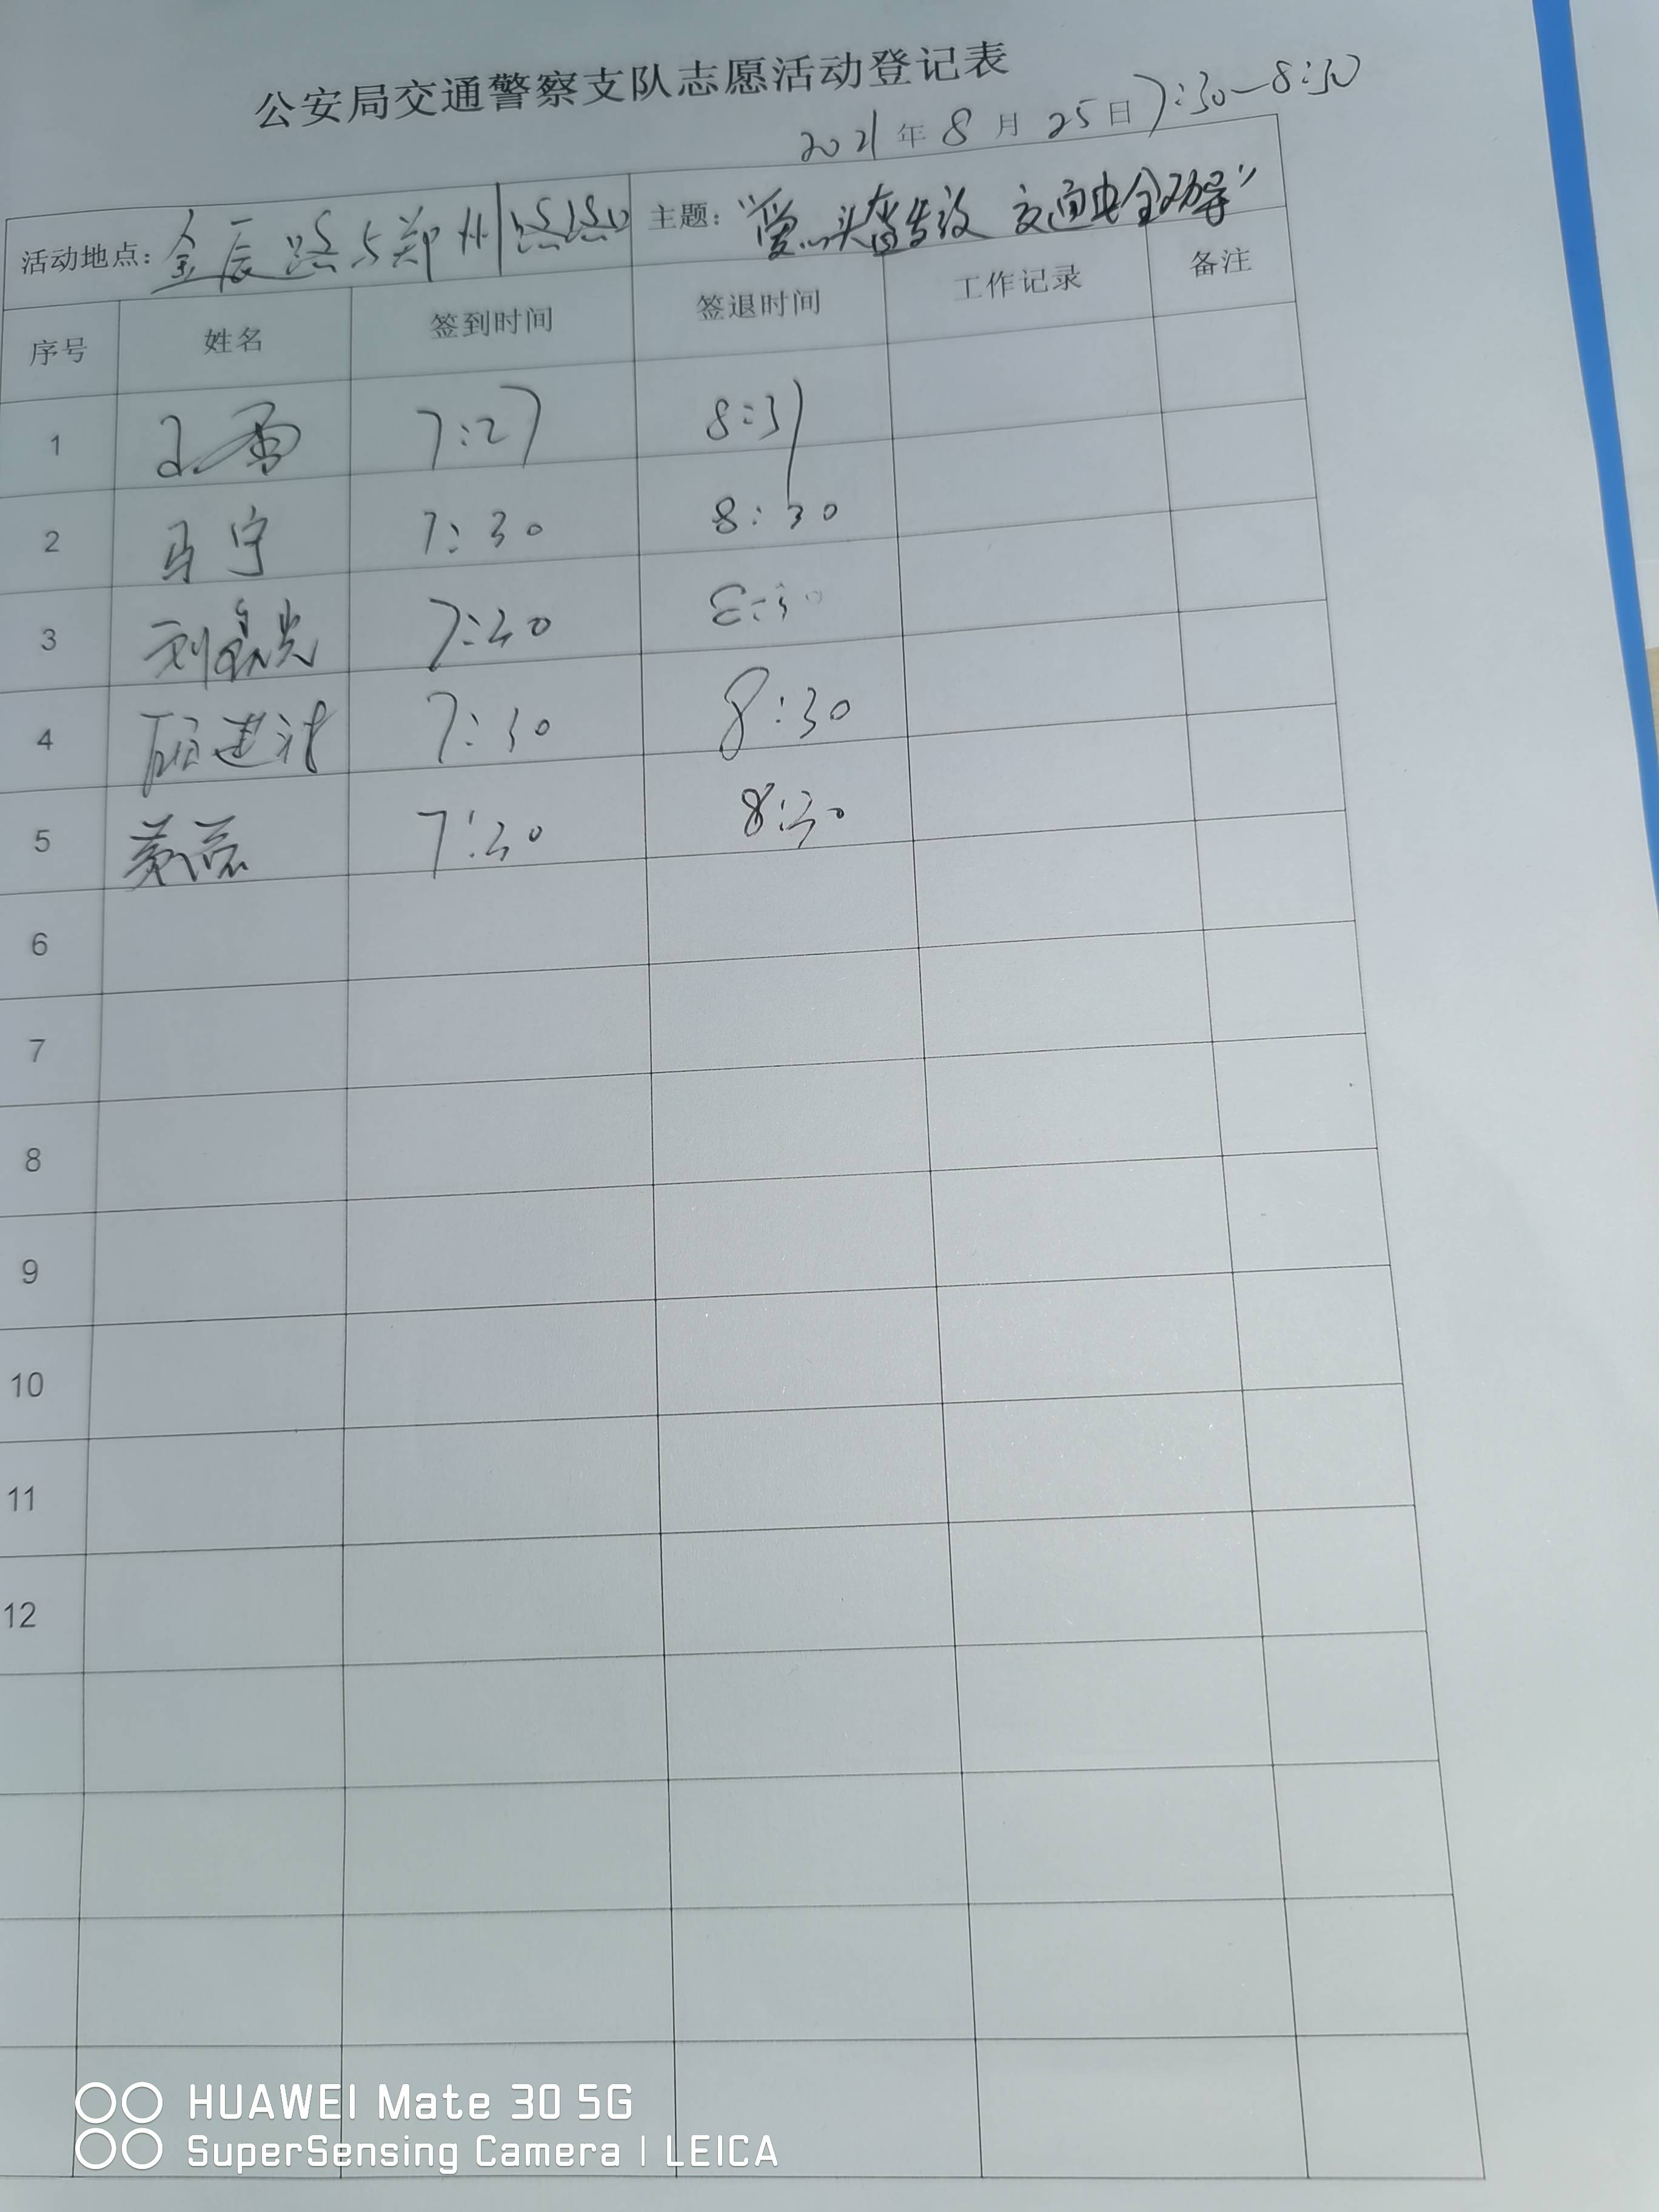 公安局交通警察支队志愿活动登记表
2021年8月25日7:30—8:30
活动地点：金辰路与郑州路路口 主题：交通安全劝导”
序号 姓名 签到时间 签退时间 工作记录 备注
1 7:27 8:31
2 马宁 7:30 8:30
3 7:30 8:30
4 7:30 8:30
5 7:30 8:30
6
7
8
9
10
11
12
HUAWEI Mate 30 5G
SuperSensing Camera | LEICA